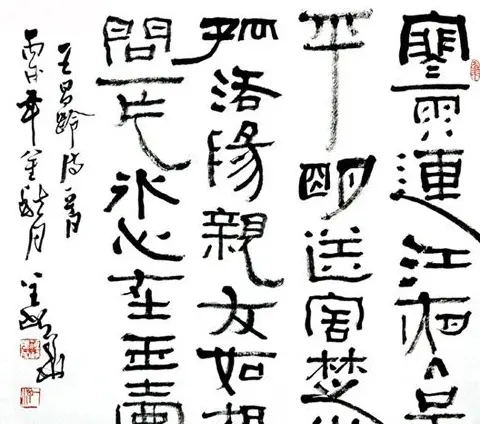 寒雨連江夜入吳
平明送客楚
孤洛陽親友如相
問一片冰心在玉壺
王昌齡詩一首
年金秋月